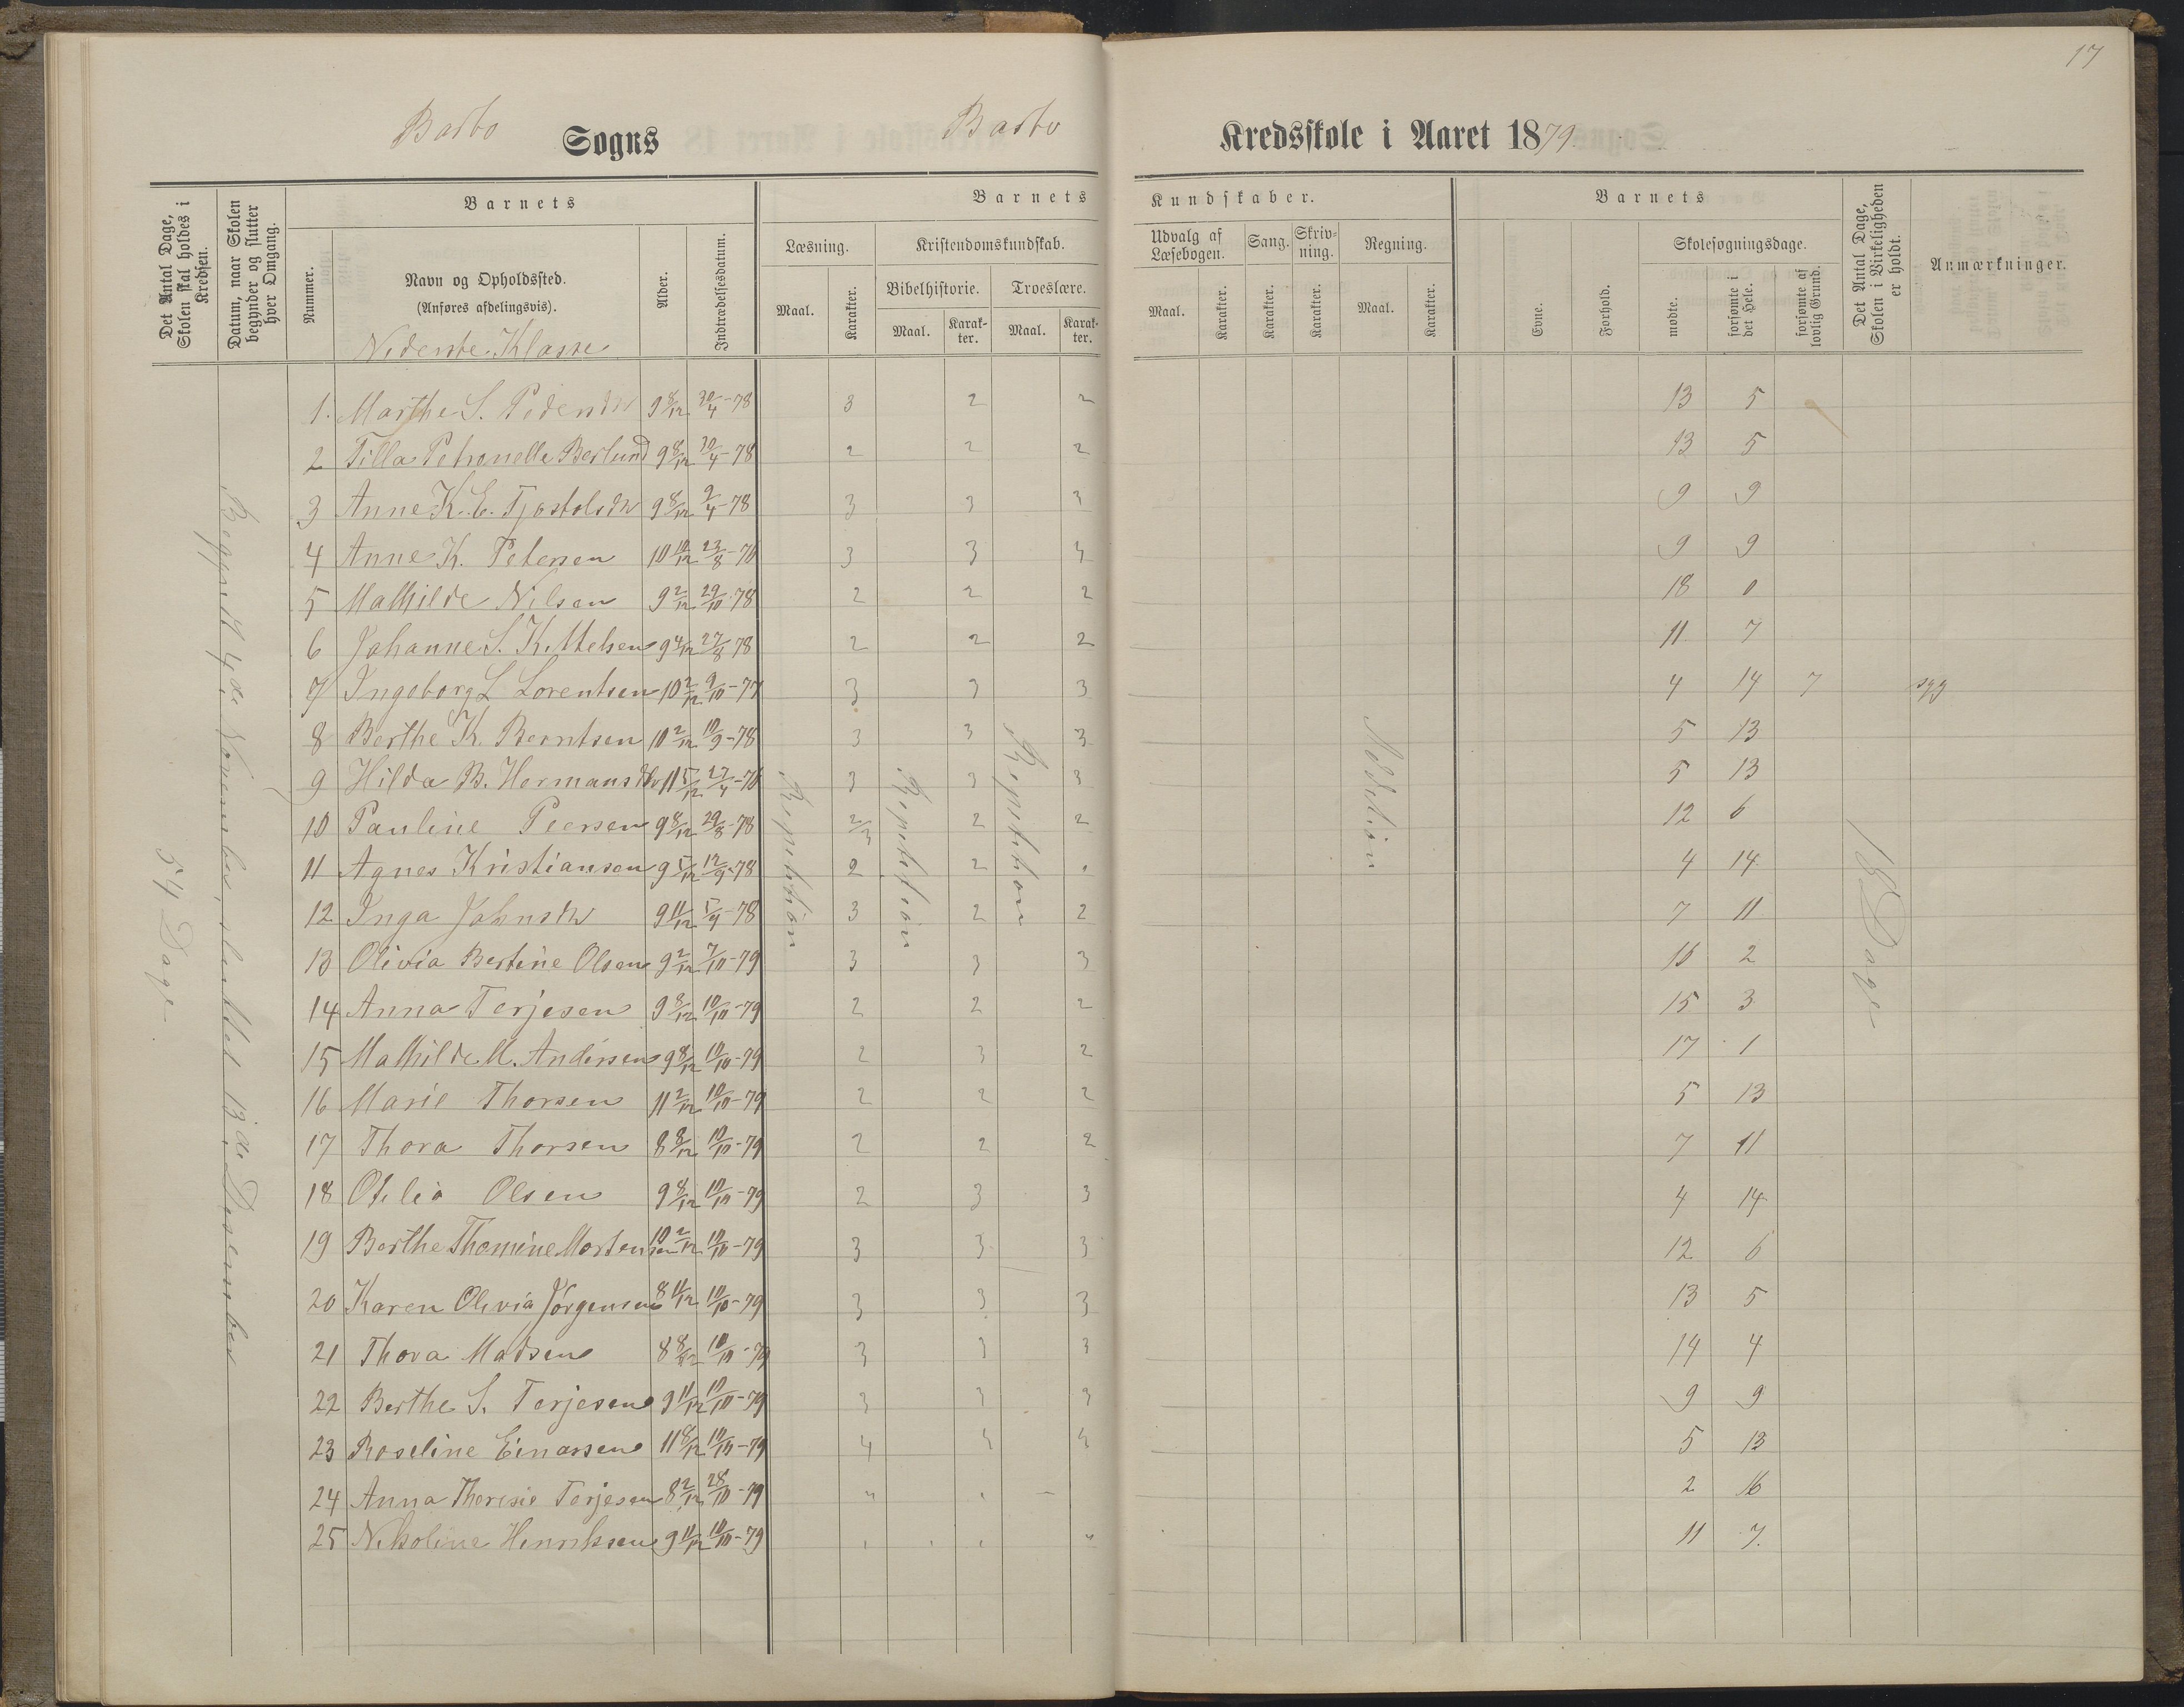 17
Barbo Sogns Barbo Kredsskole i Aaret 1879.
Det Antal Dage, Skolen skal holdes i Kredsen.
Datum, naar Skolen begynder og slutter hver Omgang.
Nummer.
Barnets
Navn og Opholdssted.
(Anføres afdelingsvis).
Nederste Klasse
Alder.
Indtrædelsesdatum.
Barnets Kundskaber.
Læsning.
Maal.
Karakter.
Kristendomskundskab.
Bibelhistorie.
Maal.
Karakter.
Troeslære.
Maal.
Karakter.
Udvalg af Læsebogen.
Maal.
Karakter.
Sang.
Karakter.
Skrivning.
Karakter.
Regning.
Maal.
Karakter.
Barnets
Evne.
Forhold.
Skolesøgningsdage.
mødte.
forsømte i det Hele.
forsømte af lovlig Grund.
Det Antal Dage, Skolen i Virkeligheden er holdt.
Anmærkninger.
54 Dage
Begyndt 4de November, sluttet 13de Desember
Repetition
Repetition
Repetition
Addition
18 Dage
1. Marthe S. Pedersdtr 9 8/12 30/4-78 3 2 2 13 5
2 Tilla Petronelle Berlund 9 8/12 30/4-78 2 2 2 13 5
3 Anne K. E. Tjostolsdtr 9 8/12 9/4-78 3 3 3 9 9
4 Anne K. Petersen 10 10/12 23/8-76 3 3 3 9 9
5 Mathilde Nilsen 9 2/12 29/10-78 2 2 2 18 0
6 Johanne S. Kittelsen 9 4/12 27/8-78 2 2 2 11 7
7 Ingeborg L Lorentsen 10 2/12 9/10-77 3 3 3 4 14 7 syg
8 Berthe K. Berntsen 10 2/12 10/9-78 3 3 3 5 13
9 Hilda B. Hermansdtr 11 5/12 27/4-76 3 3 3 5 13
10 Pauline Peersen 9 8/12 29/8-78 2/3 2 2 12 6
11 Agnes Kristiansen 9 5/12 12/9-78 2 2 " 4 14
12 Inga Johnsdtr 9 11/12 5/9-78 3 2 2 7 11
13 Olivia Bertine Olsen 9 2/12 7/10-79 3 3 3 16 2
14 Anna Terjesen 9 8/12 10/10-79 2 2 2 15 3
15 Mathilde M. Andersen 9 8/12 10/10-79 2 3 2 17 1
16 Marie Thorsen 11 2/12 10/10-79 2 2 2 5 13
17 Thora Thorsen 8 8/12 10/10-79 2 2 2 7 11
18 Otilia Olsen 9 8/12 10/10-79 2 3 3 4 14
19 Berthe Thomine Mortensen 10 2/12 10/10-79 3 3 3 12 6
20 Karen Olivia Jörgensen 8 11/12 10/10-79 3 3 3 13 5
21 Thora Madsen 8 8/12 10/10-79 3 3 3 14 4
22 Berthe S. Terjesen 9 11/12 10/10-79 3 3 3 9 9
23 Roseline Einarsen 11 8/12 10/10-79 4 4 4 5 13
24 Anna Theresie Terjesen 8 2/12 28/10-79 " " - 2 16
25 Nikoline Henriksen 9 11/12 10/10-79 " " " 11 7.